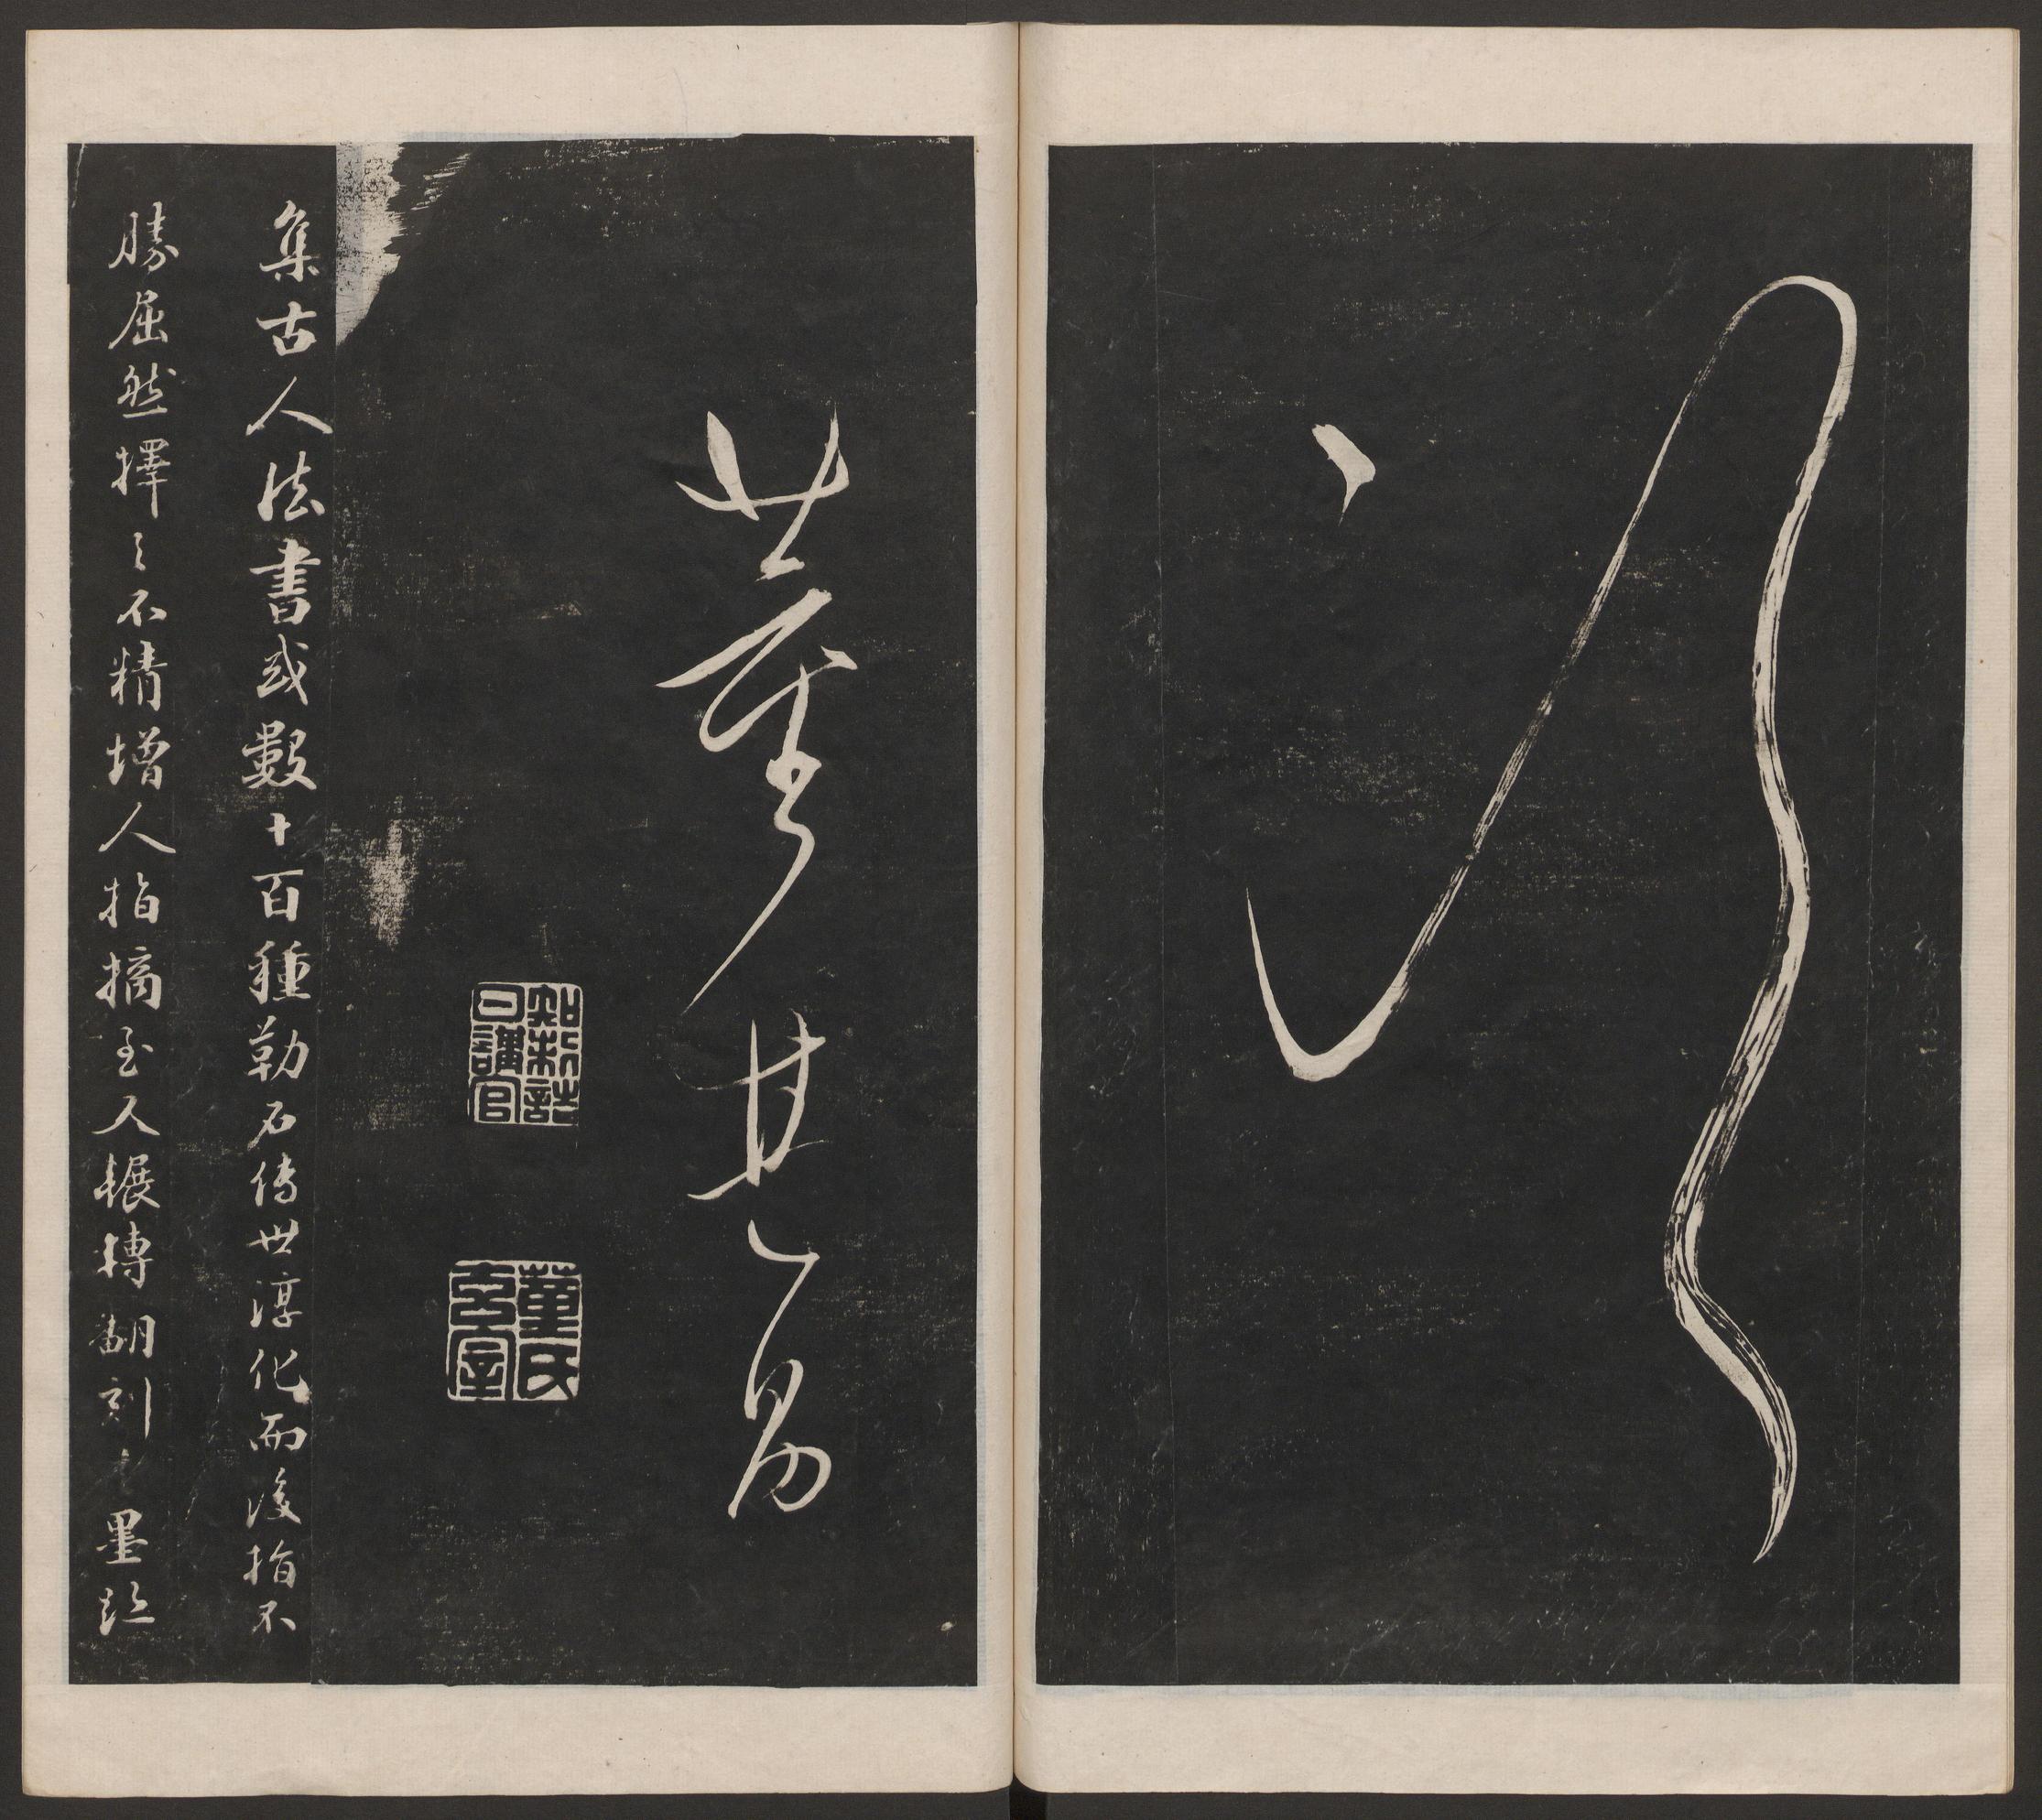 董其昌
知制誥
日講官
董氏
玄宰
集古人法書或數十百種勒石傳世淳化而後指不
勝屈然擇之不精增人指摘至輾轉翻刻墨跡